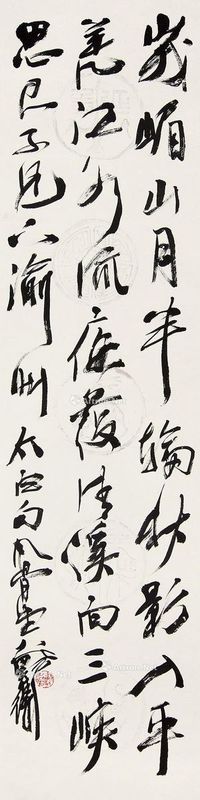 峩嵋山月半輪秋影入平
羌江水流夜發清溪向三峽
思君不見下渝州太白句